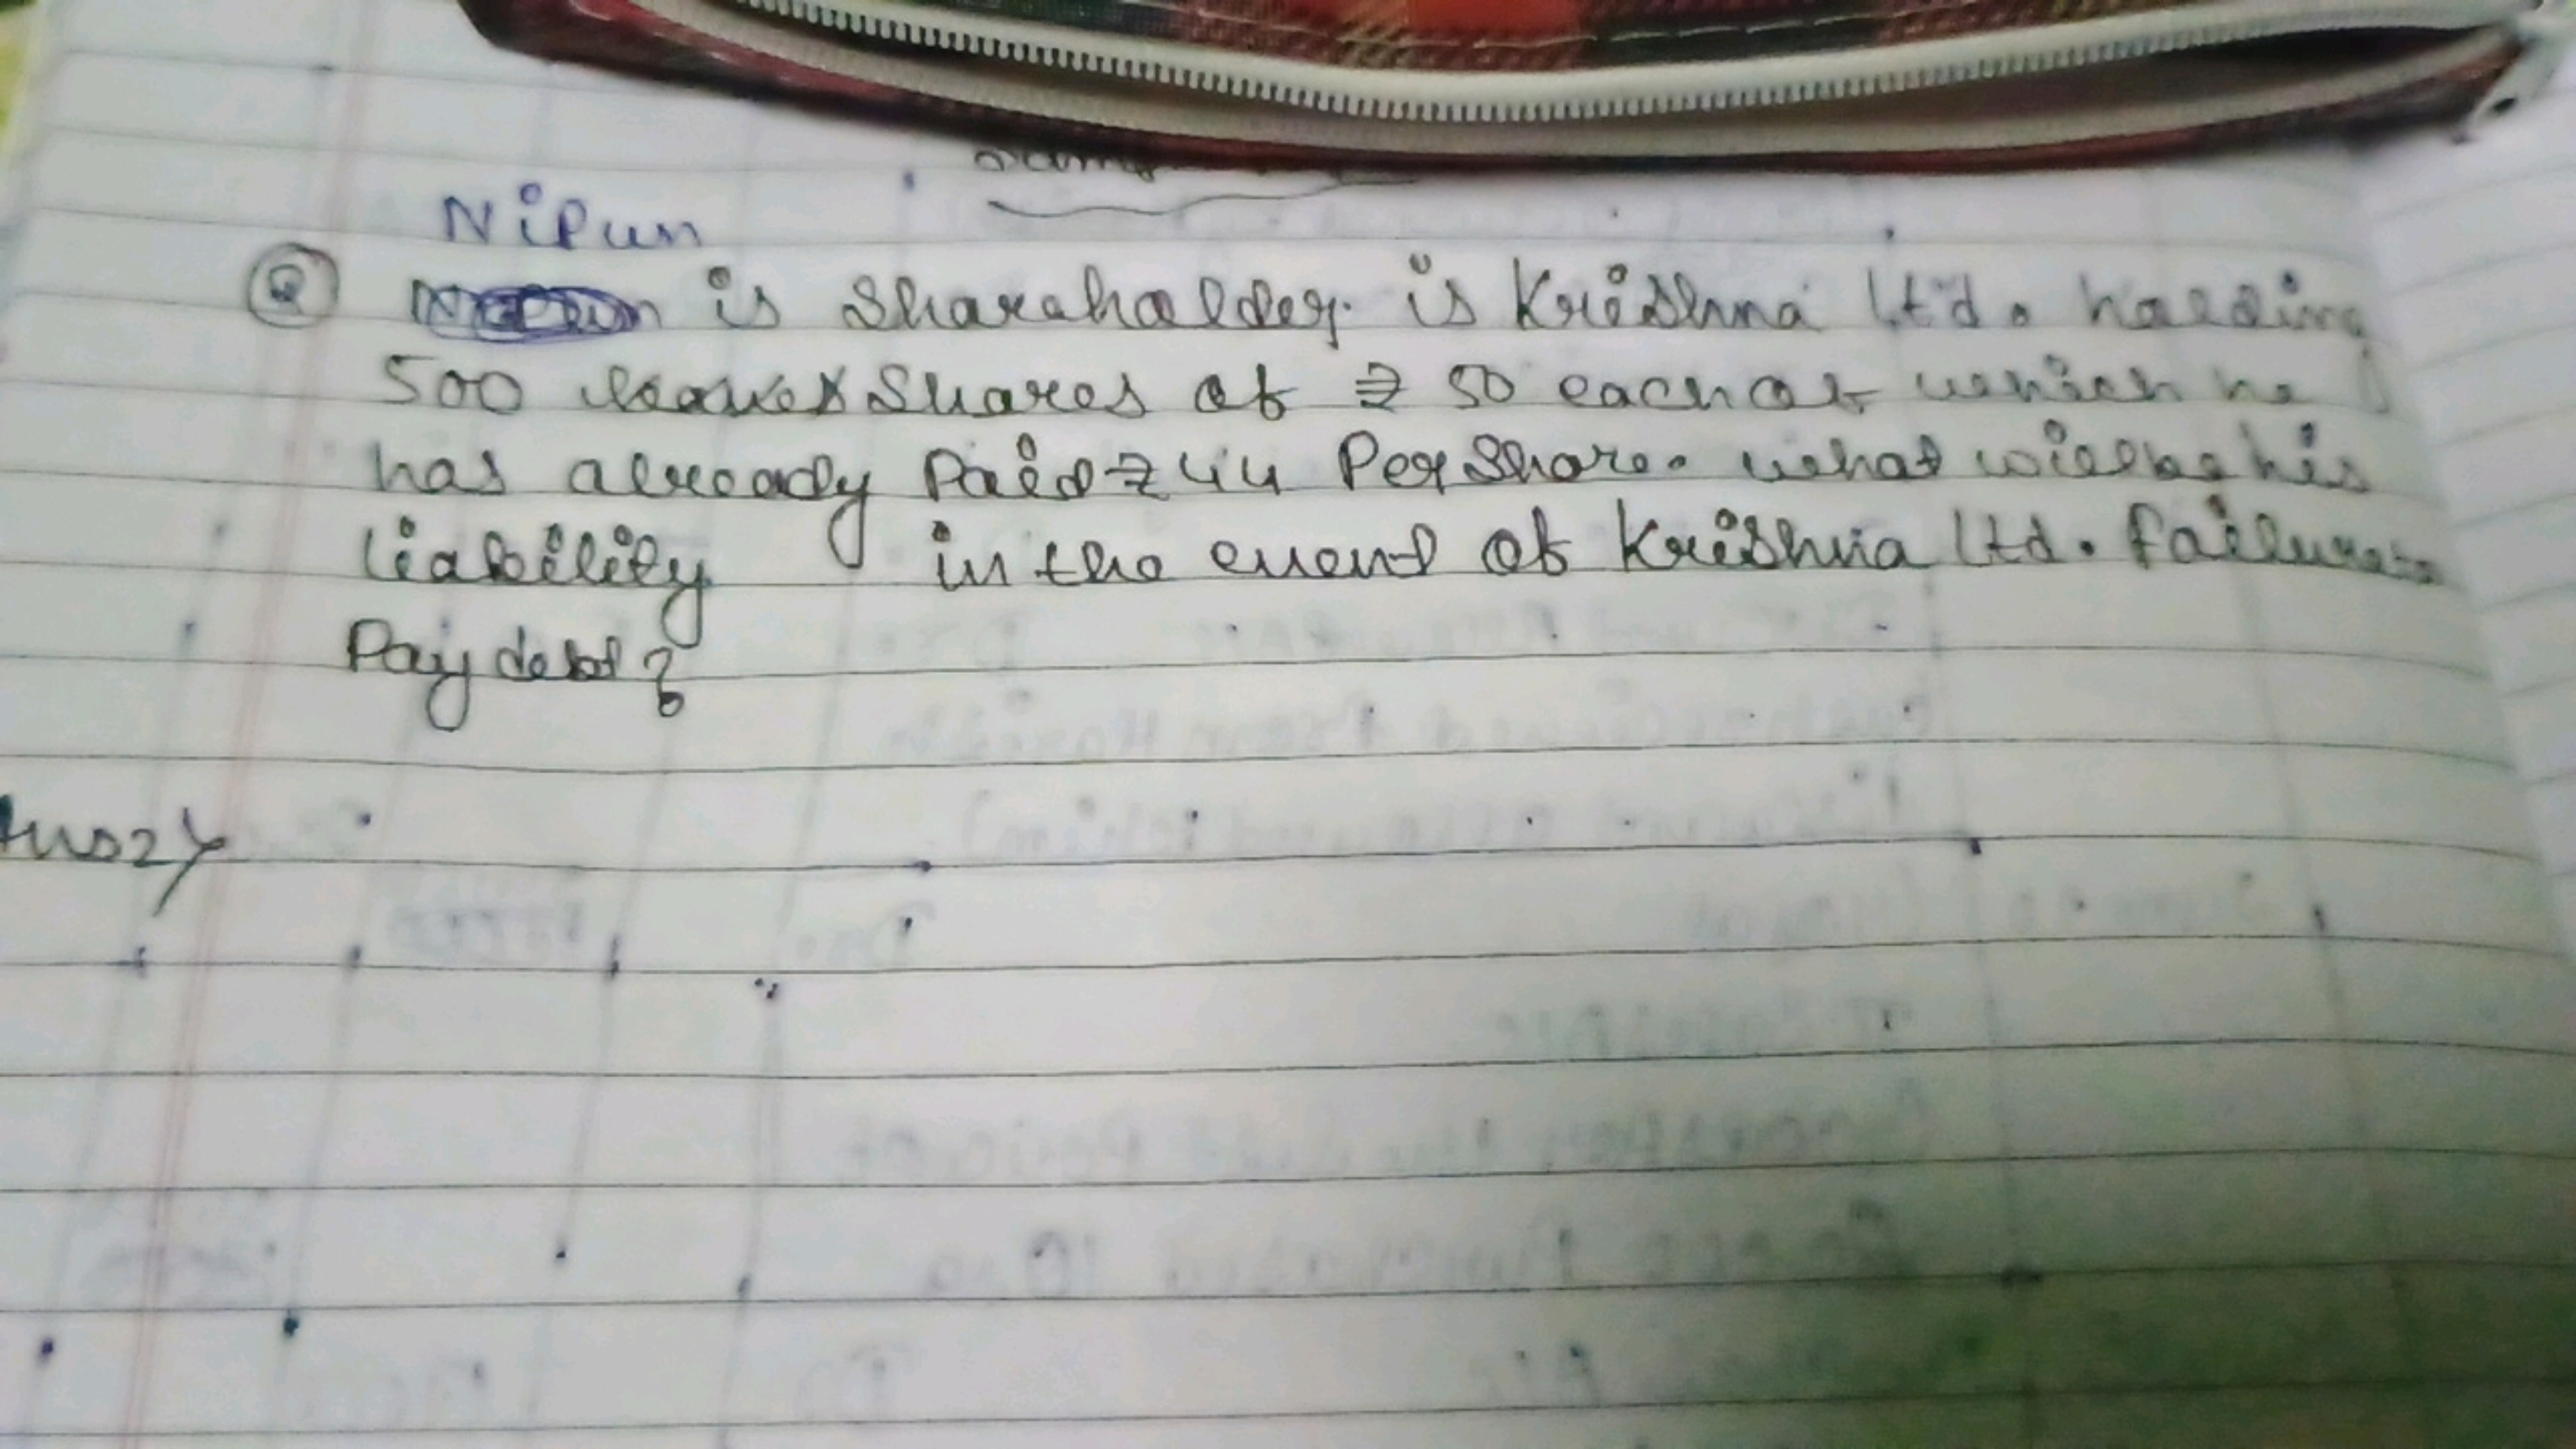 Nipun
Q is Shareholder. is Krishna Ltd. holding
500 Shares of ₹ 50 each of which he
has already Paid ₹ 44 Per Share. what will be his
liability in the event of Krishna Ltd. failure to
Pay debt?